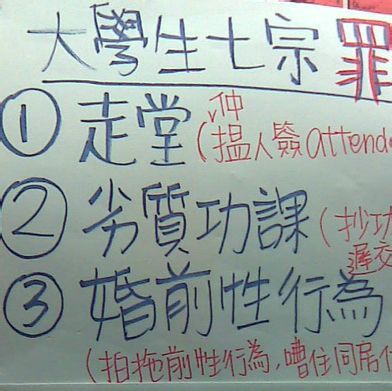 大學生七宗罪
① 走堂
(仲搵人簽attenda
② 劣質功課(抄功
遲交
③ 婚前性行為
(拍拖前性行為,嘈住同居